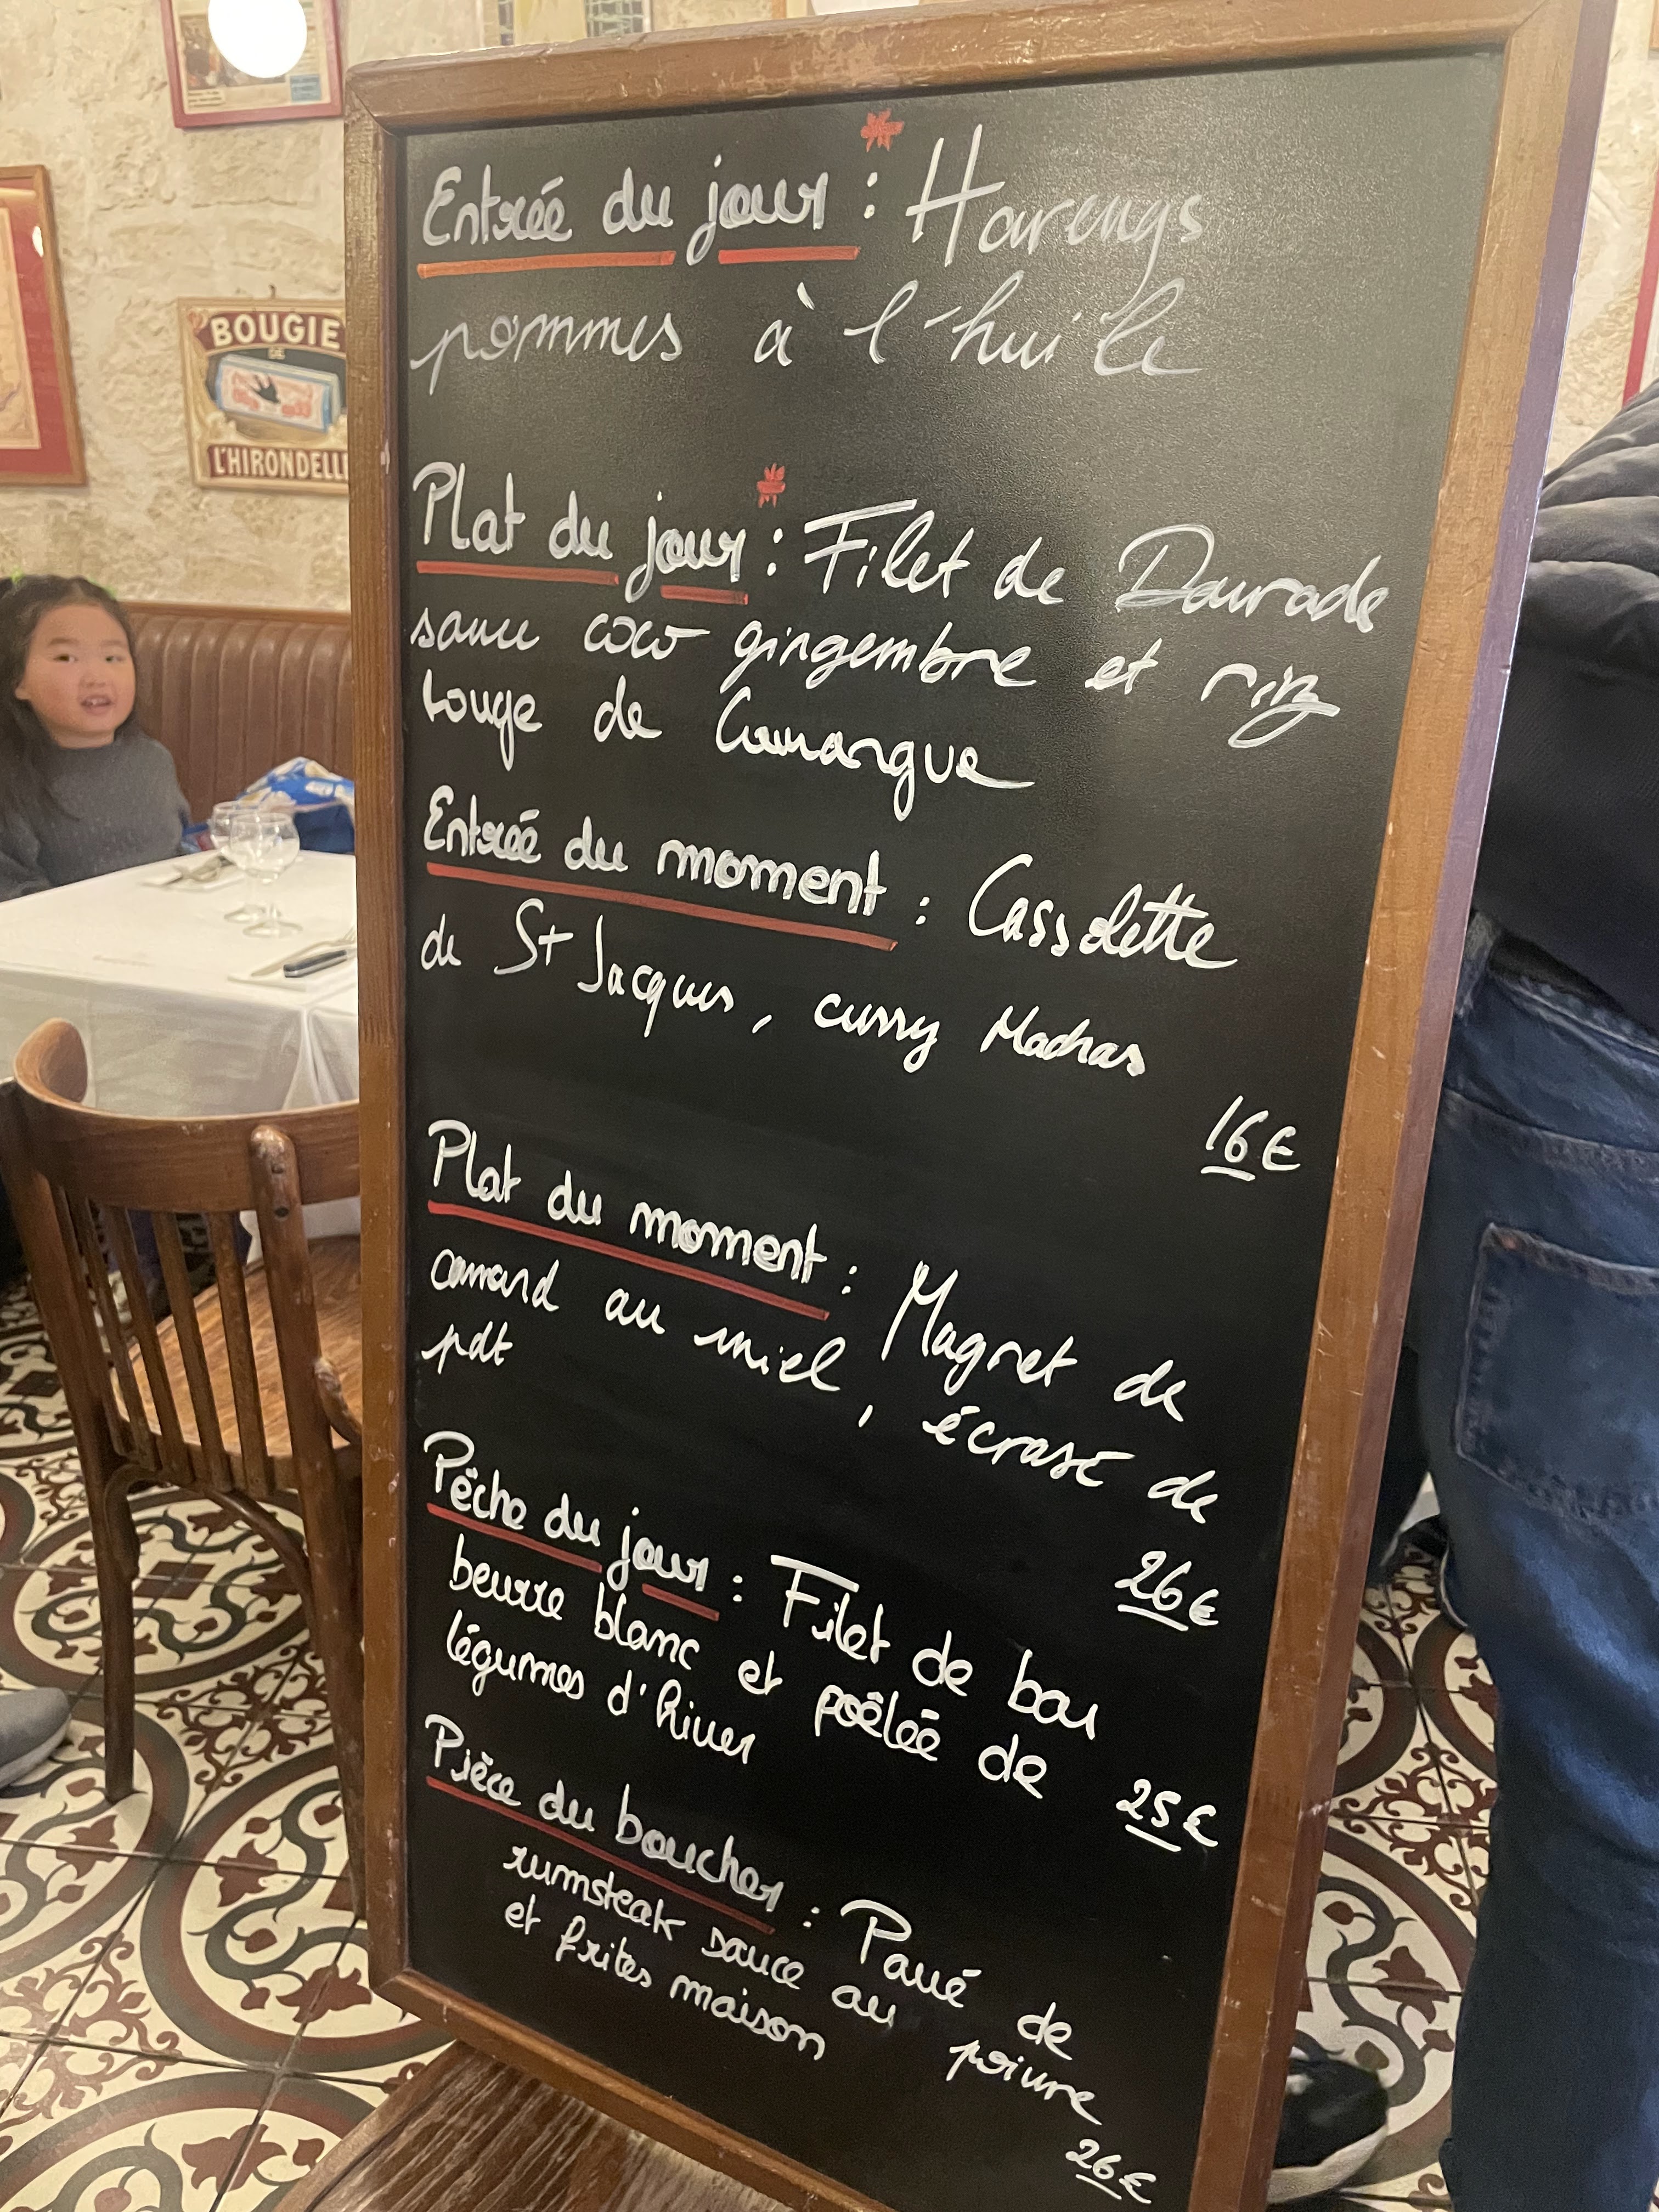 BOUGIE
DE
L'HIRONDELL
Entrée du jour * : Harengs
pommes à l'huile
Plat du jour * : Filet de Daurade
sauce coco gingembre et riz
rouge de Camargue
Entrée du moment : Cassolette
de St Jacques, curry Madras
16€
Plat du moment : Magret de
canard au miel, écrasé de
pdt
26€
Pêche du jour : Filet de bar
beurre blanc et poêlée de
légumes d'hiver
25€
Pièce du boucher : Pavé de
rumsteak sauce au poivre
et frites maison
26€